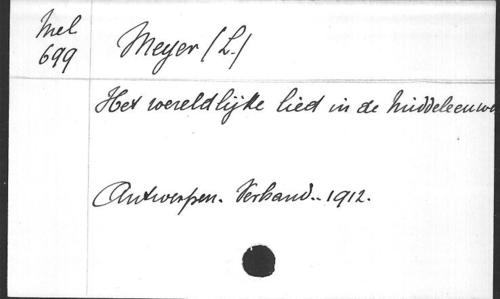 Mel
699
Meyer (L.)
Het wereldlijke lied in de Middeleeuwen
Antwerpen. Verband.. 1912.